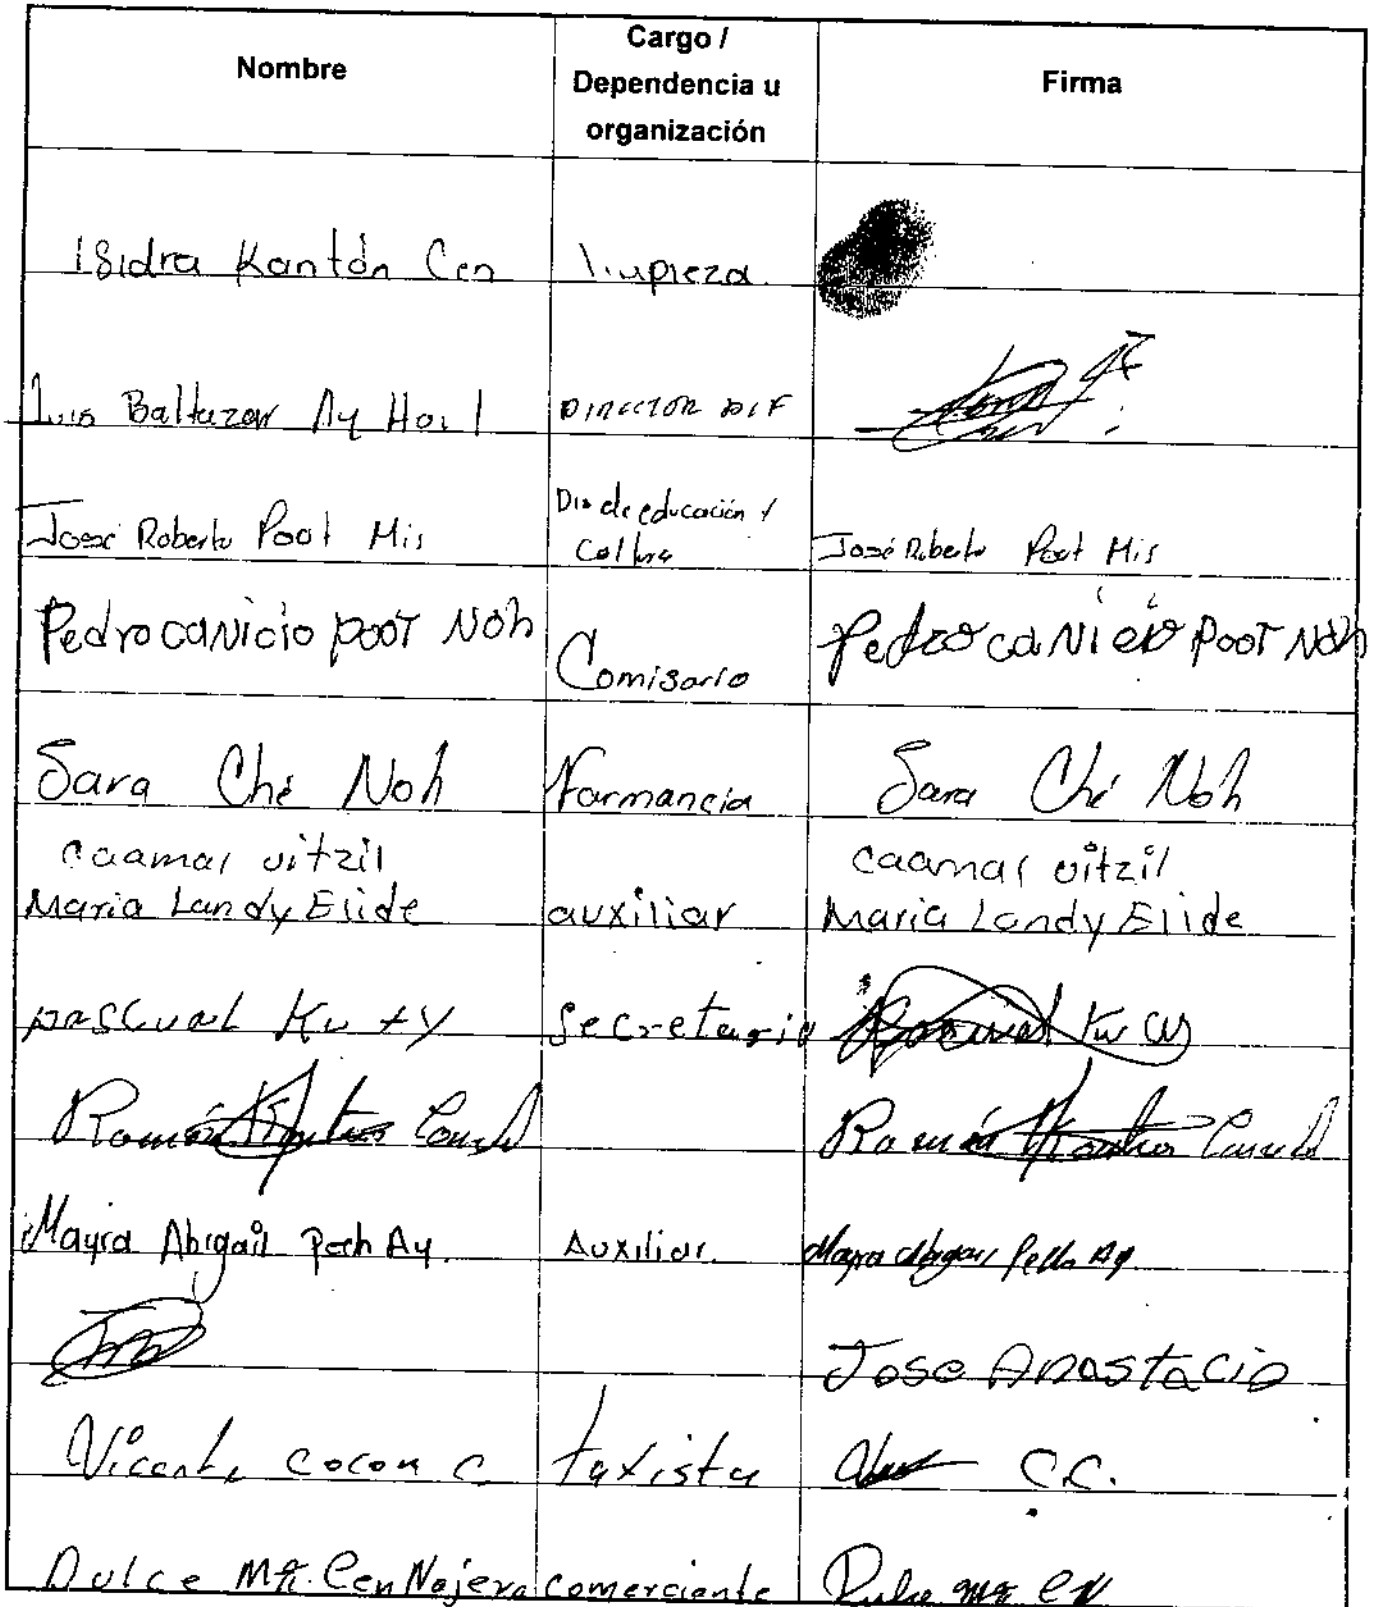 Nombre
Cargo /
Dependencia u
organización
Firma
Isidra Kantón Cen limpieza.
Luis Baltazar Ay Hau DIRECTOR DIF
José Roberto Poot Mis Dir de educación y
Cultura José Roberto Poot Mis
Pedro caNicio pooT Noh Comisario Pedro caNicio PooT Noh
Sara Ché Noh Farmancia Sara Ché Noh
caamal uitzil caamal uitzil
Maria Landy Elide auxiliar Maria Landy Elide
pascual Ku ty Secretario Pascual Ku
Ramón Canul Ramón Canul
Mayra Abigail Pech Ay. Auxiliar. Mayra Abigail Pech Ay
Jose Anastacio
Vicente cocom C taxista C.C.
Dulce Ma. Cen Najera comerciante Dulce Ma C N